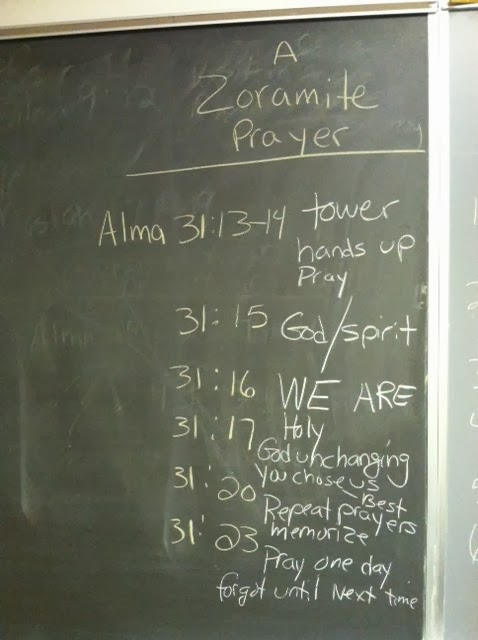 A
Zoramite
Prayer
Alma 31:13-14 tower
hands up
Pray
31:15 God/spirit
31:16 WE ARE
31:17 Holy
God unchanging
You chose us
31:20 Best
Repeat prayers
31:23 memorize
Pray one day
forgot until Next time